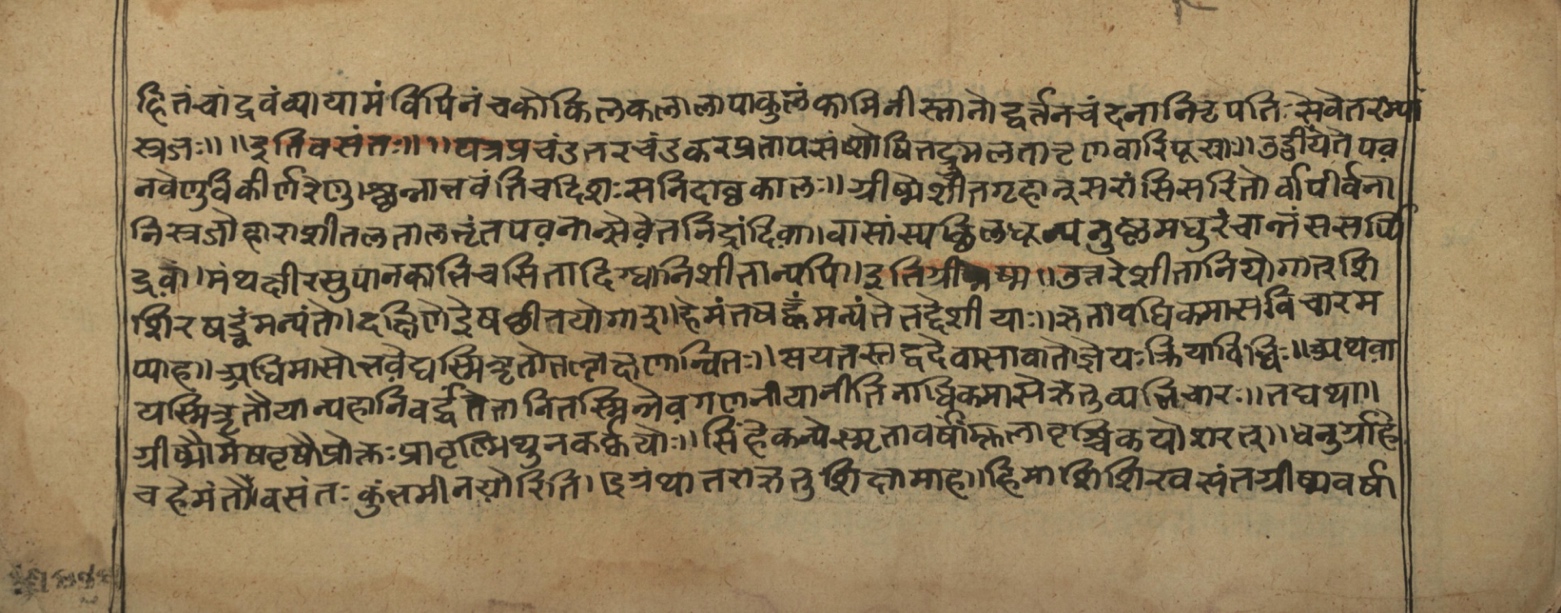 हितंचांद्रवंव्यायामंविपिनंचकोकिलकलालापाकुलंकामिनीस्नानोद्वर्तनचंदनानिनृपतिःसेवेत
स्त्रजः॥ ॥इतिवसंतः॥ ॥यत्रप्रचंडतरचंडकरप्रतापसंशोषितद्रुमलतातृणवारिपूराः॥उड्डीयेतेपव
नवेणुविकीर्णरेणुछन्नाभवंतिचदिशःसनिदाघकालः॥ग्रीष्मेशीतगृहानुसरांसिसरितोवापीर्वना
निस्त्रजोहाराशीतलतालवृंतपवनोन्सेवेतनिद्रांदिवा।वासांस्यछलघून्यनुष्णमधुरंचान्नंससर्पि
द्रवं।मंथक्षीरसुपानकानिचसितादिग्धानिशीतान्यपि।इतिग्रीष्म॥उत्तरेशीतानियोगात्शि
शिरषडृतुंमन्यंते।दक्षिणेइषछीतयोगात्॥हेमंतषष्ठंमन्यंतेतद्देशीयाः॥ऋतावधिकमासविचारम
प्याह॥अधिमासोभवेद्यस्मिन्नृतौतल्लक्षणान्वितः।सयत्नस्तद्वदेवासावातोज्ञेयःक्रियाविधिः॥अथवा
यस्मिन्नृतौयान्यहानिवर्द्धंतेतानितस्मिन्नेवगणनीयानीतिनाधिकमासेऋतुव्यभिचारः॥तद्यथा॥
ग्रीष्मौमेषवृषौप्रोक्तःप्रावृण्मिथुनकर्कयोः॥सिंहेकन्येस्मृतावर्षास्तुलावृश्चिकयोशरत्॥धनुर्ग्राहे
चहेमंतोवसंतःकुंभमीनयोरिति।इग्रंथातराऋतुशिक्षामाह॥हिमाशिशिरवसंतग्रीष्मवर्षा